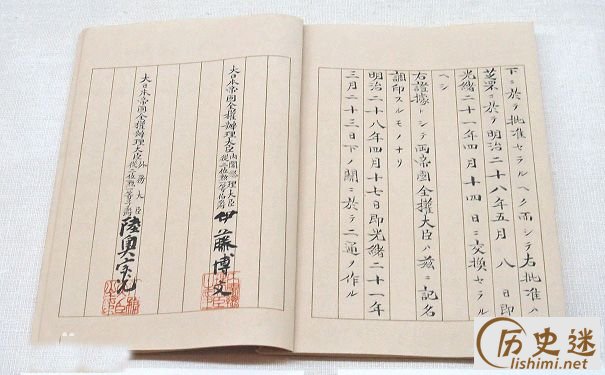 下ニ於テ批准セラルヘク而シテ右批准ハ
芝罘ニ於テ明治二十八年五月八日即
光緒二十一年四月十四日ニ交換セラル
ヘシ
右證據トシテ兩帝國全權大臣ハ茲ニ記名
調印スルモノナリ
明治二十八年四月十七日即光緒二十一年
三月二十三日下ノ關ニ於テ二通ヲ作ル
大日本帝國全權辦理大臣內閣總理大臣從二位勳一等伯爵伊藤博文
大日本帝國全權辦理大臣外務大臣從二位勳一等子爵陸奧宗光
历史迷
lishimi.net